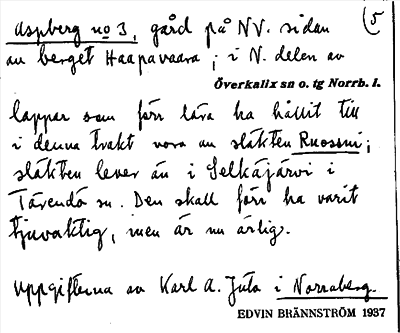 Aspberg no 3, gård på NV. sidan (5
av berget Haapavaara; i N. delen av
Överkalix sn o. tg Norrb. l.
lappar som förr lära ha hållit till
i denna trakt voro av släkten Ruossni;
släkten lever än i Selkäjärvi i
Tärendö sn. Den skall förr ha varit
tjuvaktig, men är nu ärlig.
Uppgifterna av Karl A. Juto i Norraberg.
EDVIN BRÄNNSTRÖM 1937